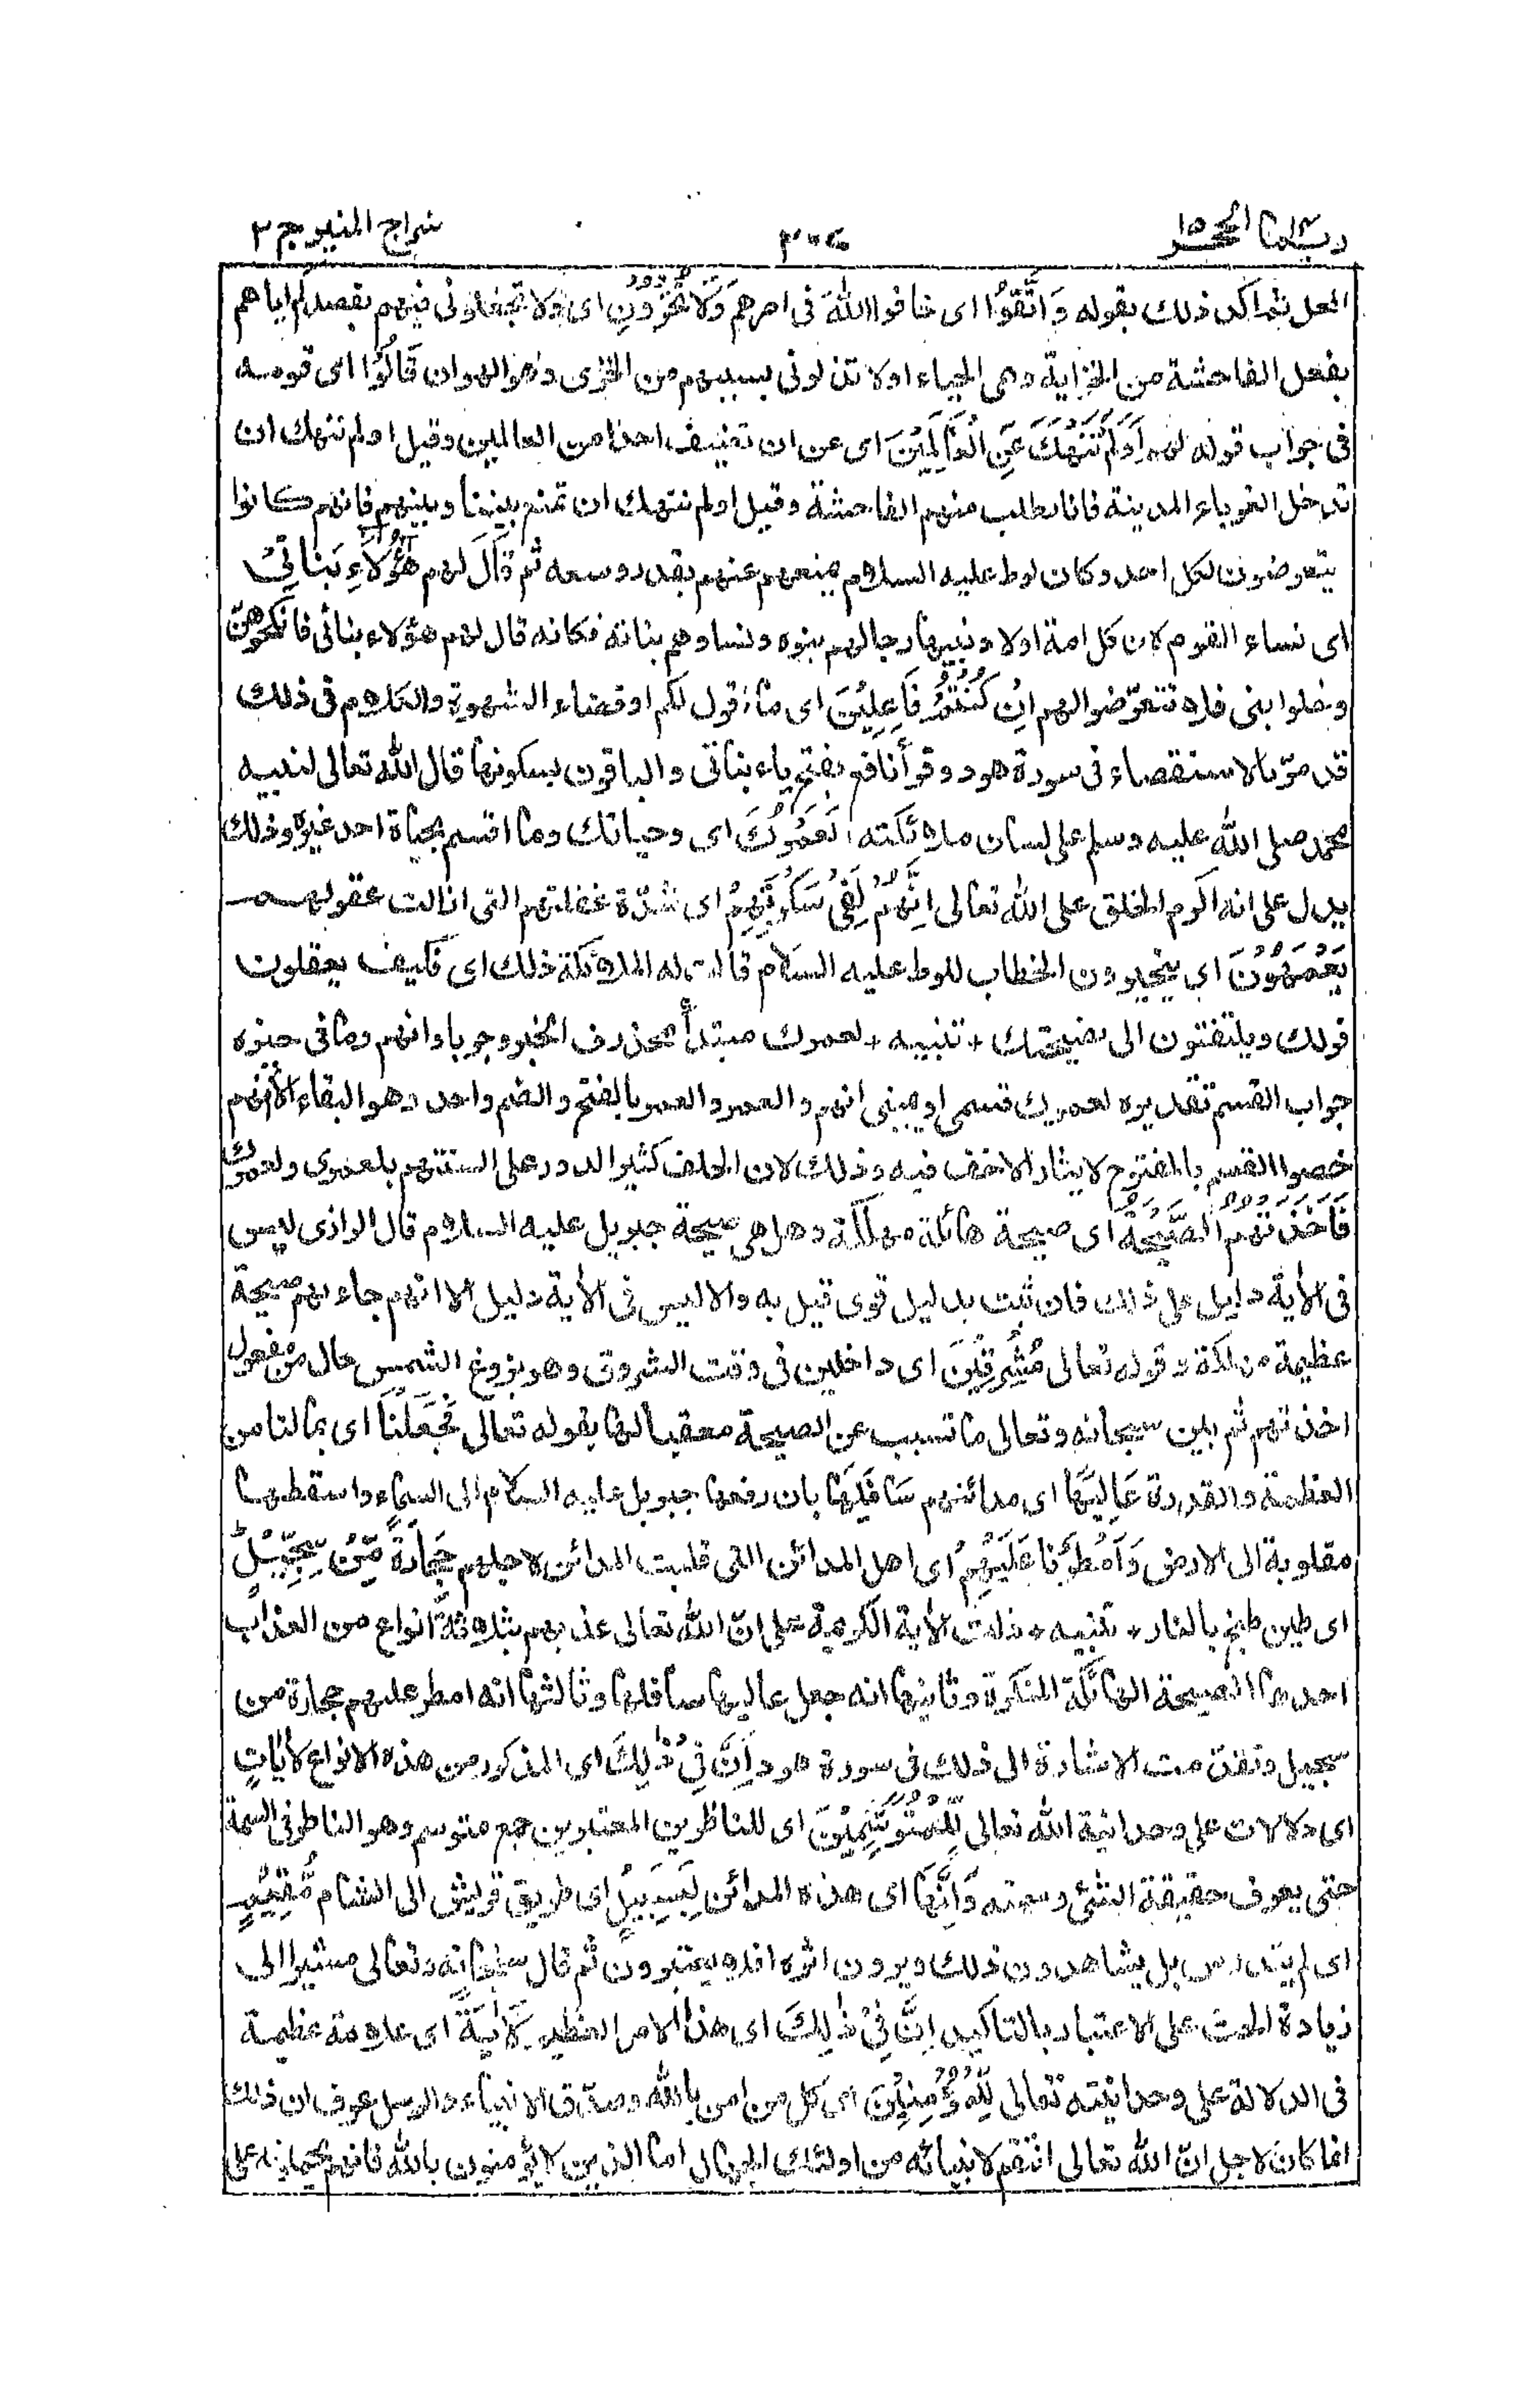 ربما ١٤ الحجر ١٥
٣٠٧
سراج المنير ج ٣
الفعل ثم اكد ذلك بقوله وَاتَّقُوا اى خافوا الله فى امرهم وَلَا تُخْزُونِ اى ولا تخجلونى فيهم بقصدكم اياهم
بفعل الفاحشة من الخزاية وهى الحياء اولا تذلونى بسببهم من الخزى وهو الهوان قَالُوْا اى قومه
فى جواب قوله لهم اَوَلَمْ نَنْهَكَ عَنِ الْعَالَمِيْنَ اى عن ان تضيف احدا من العالمين وقيل اولم ننهك ان
تدخل الغرباء المدينة فانا نطلب منهم الفاحشة وقيل اولم ننهك ان تمنع بيننا وبينهم فانهم كانوا
يتعرضون لكل احد وكان لوط عليه السلام يمنعهم عنهم بقدر وسعه ثم قَالَ لهم هٰٓؤُلَاءِ بَنَاتِىْ
اى نساء القوم لان كل امة اولاد نبيها رجالهم بنوه ونساوهم بناته فكانه قال لهم هؤلاء بناتى فانكحوهنّ
وخلوا بنى فلا تتعرّضوا لهم اِنْ كُنْتُمْ فَاعِلِيْنَ اى ما اقول لكم او قضاء الشهوة والكلام فى ذلك
قد مرّ بالاستقصاء فى سورة هود وقرأ نافع بفتح ياء بناتى والباقون بسكونها قال الله تعالى لنبيه
محمد صلى الله عليه وسلم على لسان ملائكته لَعَمْرُكَ اى وحياتك وما اقسم بحياة احد غيره وذلك
يدل على انه اكرم الخلق على الله تعالى اِنَّهُمْ لَفِىْ سَكْرَتِهِمْ اى شدّة غفلتهم التى ازالت عقولهم
يَعْمَهُوْنَ اى يتحيرون الخطاب للوط عليه السلام قالت له الملائكة ذلك اى فكيف يعقلون
قولك ويلتفتون الى نصيحتك + تنبيه + لعمرك مبتدأ محذوف الخبر وجوبا وانهم وما فى حيزه
جواب القسم تقديره لعمرك قسمى او يمينى انهم والعمر والعمر بالفتح والضم واحد وهو البقاء الا انهم
خصوا القسم بالمفتوح لايثار الاخف فيه وذلك لان الحلف كثير الدور على السنتهم بلعمرى ولعمرك
فَاَخَذَتْهُمُ الصَّيْحَةُ اى صيحة هائلة مهلكة وهل هى صيحة جبريل عليه السلام قال الرازى ليس
فى الأية دليل على ذلك فان ثبت بدليل قوى قيل به والا ليس فى الأية دليل الا انهم جاءتهم صيحة
عظيمة مهلكة وقوله تعالى مُشْرِقِيْنَ اى داخلين فى وقت الشروق وهو بزوغ الشمس حال من مفعول
اخذتهم ثم بين سبحانه وتعالى ما تسبب عن الصيحة معقبا لها بقوله تعالى فَجَعَلْنَا اى بما لنا من
العظمة والقدرة عَالِيَهَا اى مدائنهم سَافِلَهَا بان رفعها جبريل عليه السلام الى السماء واسقطها
مقلوبة الى الارض وَاَمْطَرْنَا عَلَيْهِمْ اى اهل المدائن التى قلبت المدائن لاجلهم حِجَارَةً مِّنْ سِجِّيْلٍ
اى طين طبخ بالنار + تنبيه + دلت الأية الكريمة على انّ الله تعالى عذبهم بثلاثة انواع من العذاب
احدها الصيحة الهائلة المنكرة وثانيها انه جعل عاليها سافلها وثالثها انه امطر عليهم حجارة من
سجيل وتقدّمت الاشارة الى ذلك فى سورة هود اِنَّ فِىْ ذٰلِكَ اى المذكور من هذه الانواع لَاٰيَاتٍ
اى دلالات على وحدانية الله تعالى لِّلْمُتَوَسِّمِيْنَ اى للناظرين المعتبرين جمع متوسم وهو الناظر فى السمة
حتى يعرف حقيقة الشئ وسمته وَاِنَّهَا اى هذه المدائن لَبِسَبِيْلٍ اى طريق قريش الى الشام مُّقِيْمٍ
اى لم يندرس بل يشاهدون ذلك ويرون اثره افلا يعتبرون ثم قال سبحانه وتعالى مشيرا الى
زيادة الحث على الاعتبار بالتاكيد اِنَّ فِىْ ذٰلِكَ اى هذا الامر العظيم لَاٰيَةً اى علامة عظيمة
فى الدلالة على وحدانيته تعالى لِّلْمُؤْمِنِيْنَ اى كل من امن بالله وصدّق الانبياء والرسل عرف ان ذلك
انما كان لاجل انّ الله تعالى انتقم لانبيائه من اولئك الجهال اما الذين لا يؤمنون بالله فانهم يحملونه على